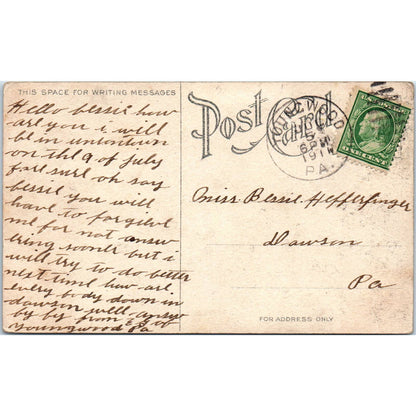 THIS SPACE FOR WRITING MESSAGES
Post Card
Hello bessie how
are you i will
be in uniontown
on the 9 of july
for surl oh say
bessie you will
have to forgive
me for not answ
ering sooner but i
will try to do better
next time how are
every body down in
dawson well answ
by by from
youngwood Pa
YOUNGWOOD
6 PM
191
PA.
ONE CENT
Miss Bessie Hefferfinger
Dawson
Pa
FOR ADDRESS ONLY